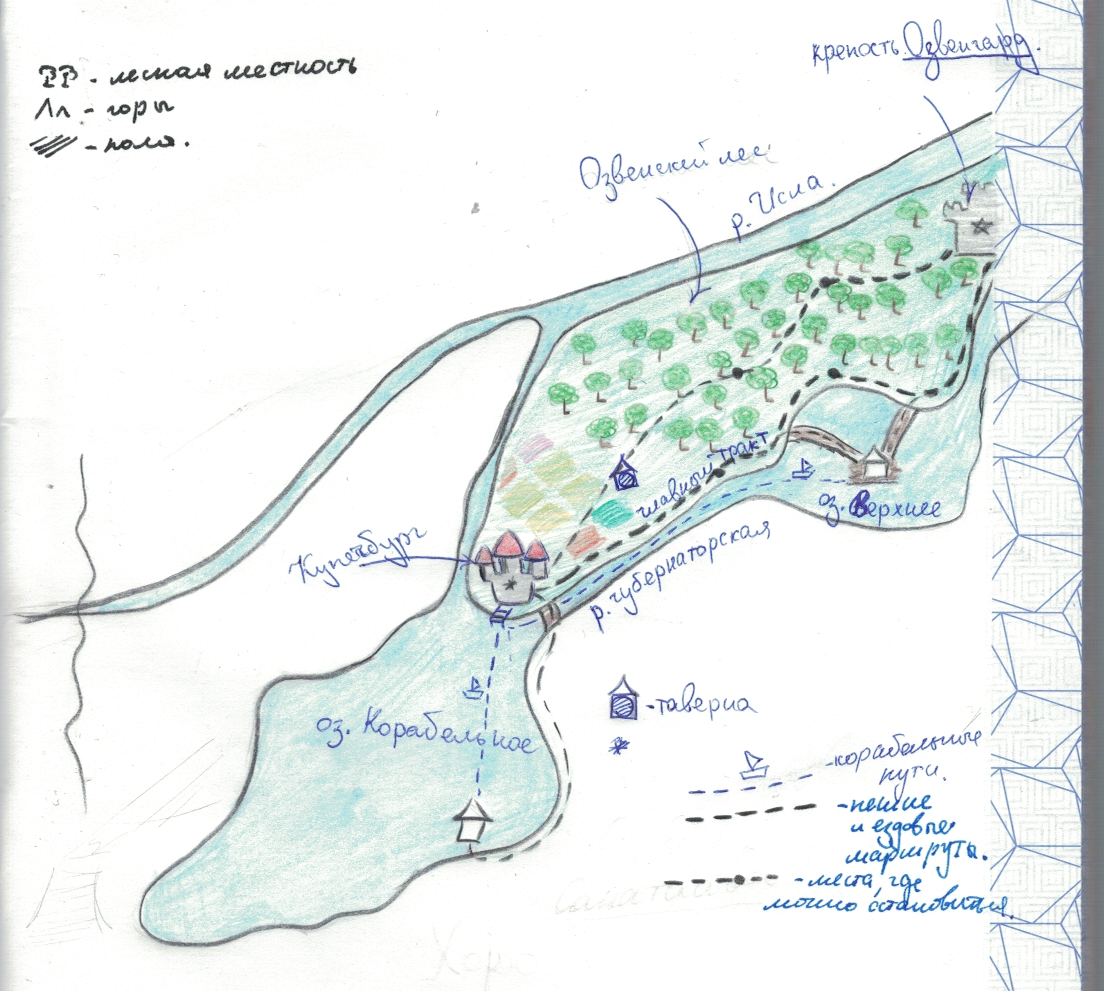 крепость Озвенгард.
РР - лесная местность
Лл - горы
- поля.
Озвенский лес
р. Исла.
главный тракт
оз. Верхнее
Купечбург
р. губернаторская
оз. Корабельное
- таверна
- корабельные
пути.
- пешие
и ездовые
маршруты.
- места, где
можно остановиться.